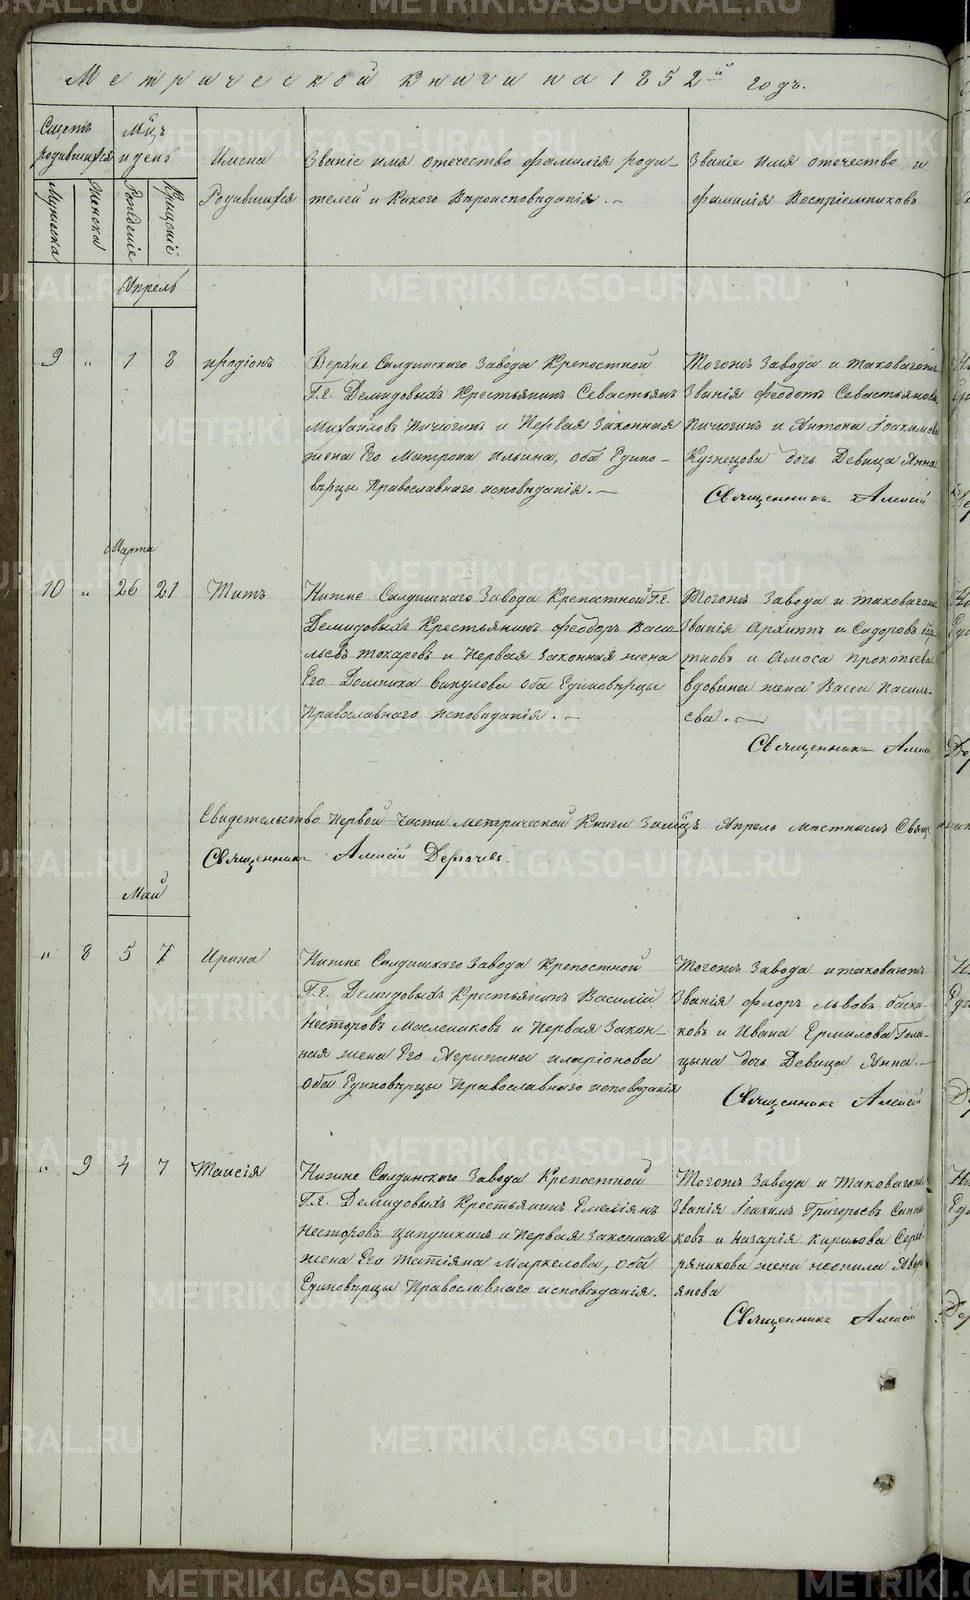 Метрической книги на 1852й годъ.
Счетъ родившихся
Мужеска
Женска
Мцъ и день
Рожденіе
Крещеніе
Имена Родившихся
Званіе имя отечество фамилія роди-
телей и Какого Вѣроисповѣданія.
Званіе Имя отечество и
фамилія Воспріемниковъ
Апрель
9 " 1 8 иродіонъ
Верхне Салдинскаго Завода Крепостной
Г.г. Демидовыхъ Крестьянинъ Севастьянъ
Михайловъ Пичюгинъ и Первая Законная
жена Его Матрона Ильина, оба Едино-
вѣрцы Православнаго исповѣданія.
Тогожъ Завода и таковагожъ
Званія Феодотъ Севастьяновъ
Пичюгинъ и Антона Іоакимова
Кузнецова дочь Девица Анна
Священникъ Алексій
Марта
10 " 26 21 Титъ
Нижне Салдинскаго Завода Крепостной Г.г.
Демидовыхъ Крестьянинъ Феодоръ Васи-
льевъ Токаревъ и Первая Законная жена
Его Домника Викулова Оба Единовѣрцы
Православнаго исповѣданія.
Тогожъ Завода и таковагожъ
Званія Архиппъ Сидоровъ
и Амоса Прокопьева
вдовина жена Васса Василь-
ева.
Священникъ Алексій
Свидетельство Первой Части метрической Книги За мцъ Апрель местнымъ Свящ
Священникъ Алексій Дерпачевъ.
Май
" 8 5 7 Ирина
Нижне Салдинскаго Завода Крепостной
Г.г. Демидовыхъ Крестьянинъ Василій
Несторовъ Маслениковъ и Первая Закон-
ная жена Его Агрипина иларіонова
Оба Единовѣрцы Православнаго исповѣданія
Тогожъ Завода и таковагожъ
Званія флоръ Львовъ
ковъ и Ивана Ермилова Голи-
цына дочь Девица Анна.
Священникъ Алексій
" 9 4 7 Таисія
Нижне Салдинскаго Завода Крепостной
Г.г. Демидовыхъ Крестьянинъ Емеліянъ
Несторовъ Ципушкинъ и Первая Законная
жена Его Татіяна Маркелова, оба
Единовѣрцы Православнаго исповѣданія.
Тогожъ Завода и Таковагожъ
Званія Іоакимъ Григорьевъ
ковъ и Назарія Кирилова Сереб
рянникова жена неонила Авер
янова
Священникъ Алексій
METRIKI.GASO-URAL.RU